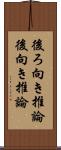 後ろ向き推論
後向き推論